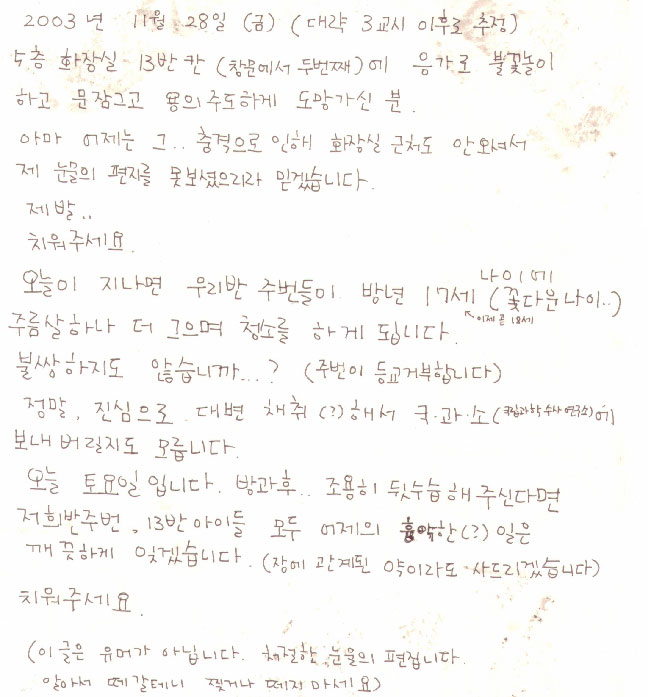 2003년 11월 28일 (금) (대략 3교시 이후로 추정)
5층 화장실 13반 칸 (창문에서 두번째)에 응가로 불꽃놀이
하고 문잠그고 용의주도하게 도망가신 분.
아마 어제는 그.. 충격으로 인해 화장실 근처도 안와셔서
제 눈물의 편지를 못보셨으리라 믿겠습니다.
제발..
치워주세요.
오늘이 지나면 우리반 주번들이 방년 17세 (꽃다운 나이..) 나이에
↖이제 곧 18세
주름살하나 더 그으며 청소를 하게 됩니다.
불쌍하지도 않습니까...? (주번이 등교거부합니다)
정말, 진심으로 대변 채취(?)해서 국·과·소(국립과학수사연구소)에
보내버릴지도 모릅니다.
오늘 토요일입니다. 방과후.. 조용히 뒷수습해 주신다면
저희반주번, 13반아이들 모두 어제의 흉악한(?) 일은
깨끗하게 잊겠습니다. (장에 관계된 약이라도 사드리겠습니다)
치워주세요.
(이글은 유머가 아닙니다. 처절한 눈물의 편집니다.
알아서 떼갈테니 찢거나 떼지 마세요)